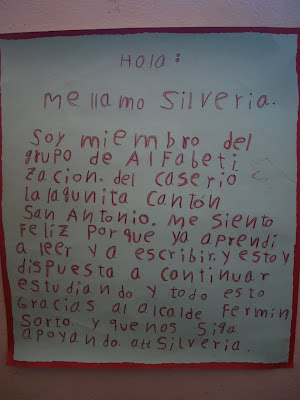 Hola:
me llamo Silveria.
Soy miembro del
grupo de Alfabeti
zacion. del caserio
la lagunita Cantón
San Antonio. me siento
Feliz Porque ya aprendi
a leer y a escribir. y estoy
dispuesta a continuar
estudiando y todo esto
Gracias al alcalde Fermin
Sorto y que nos Siga
apoyando. att Silveria.